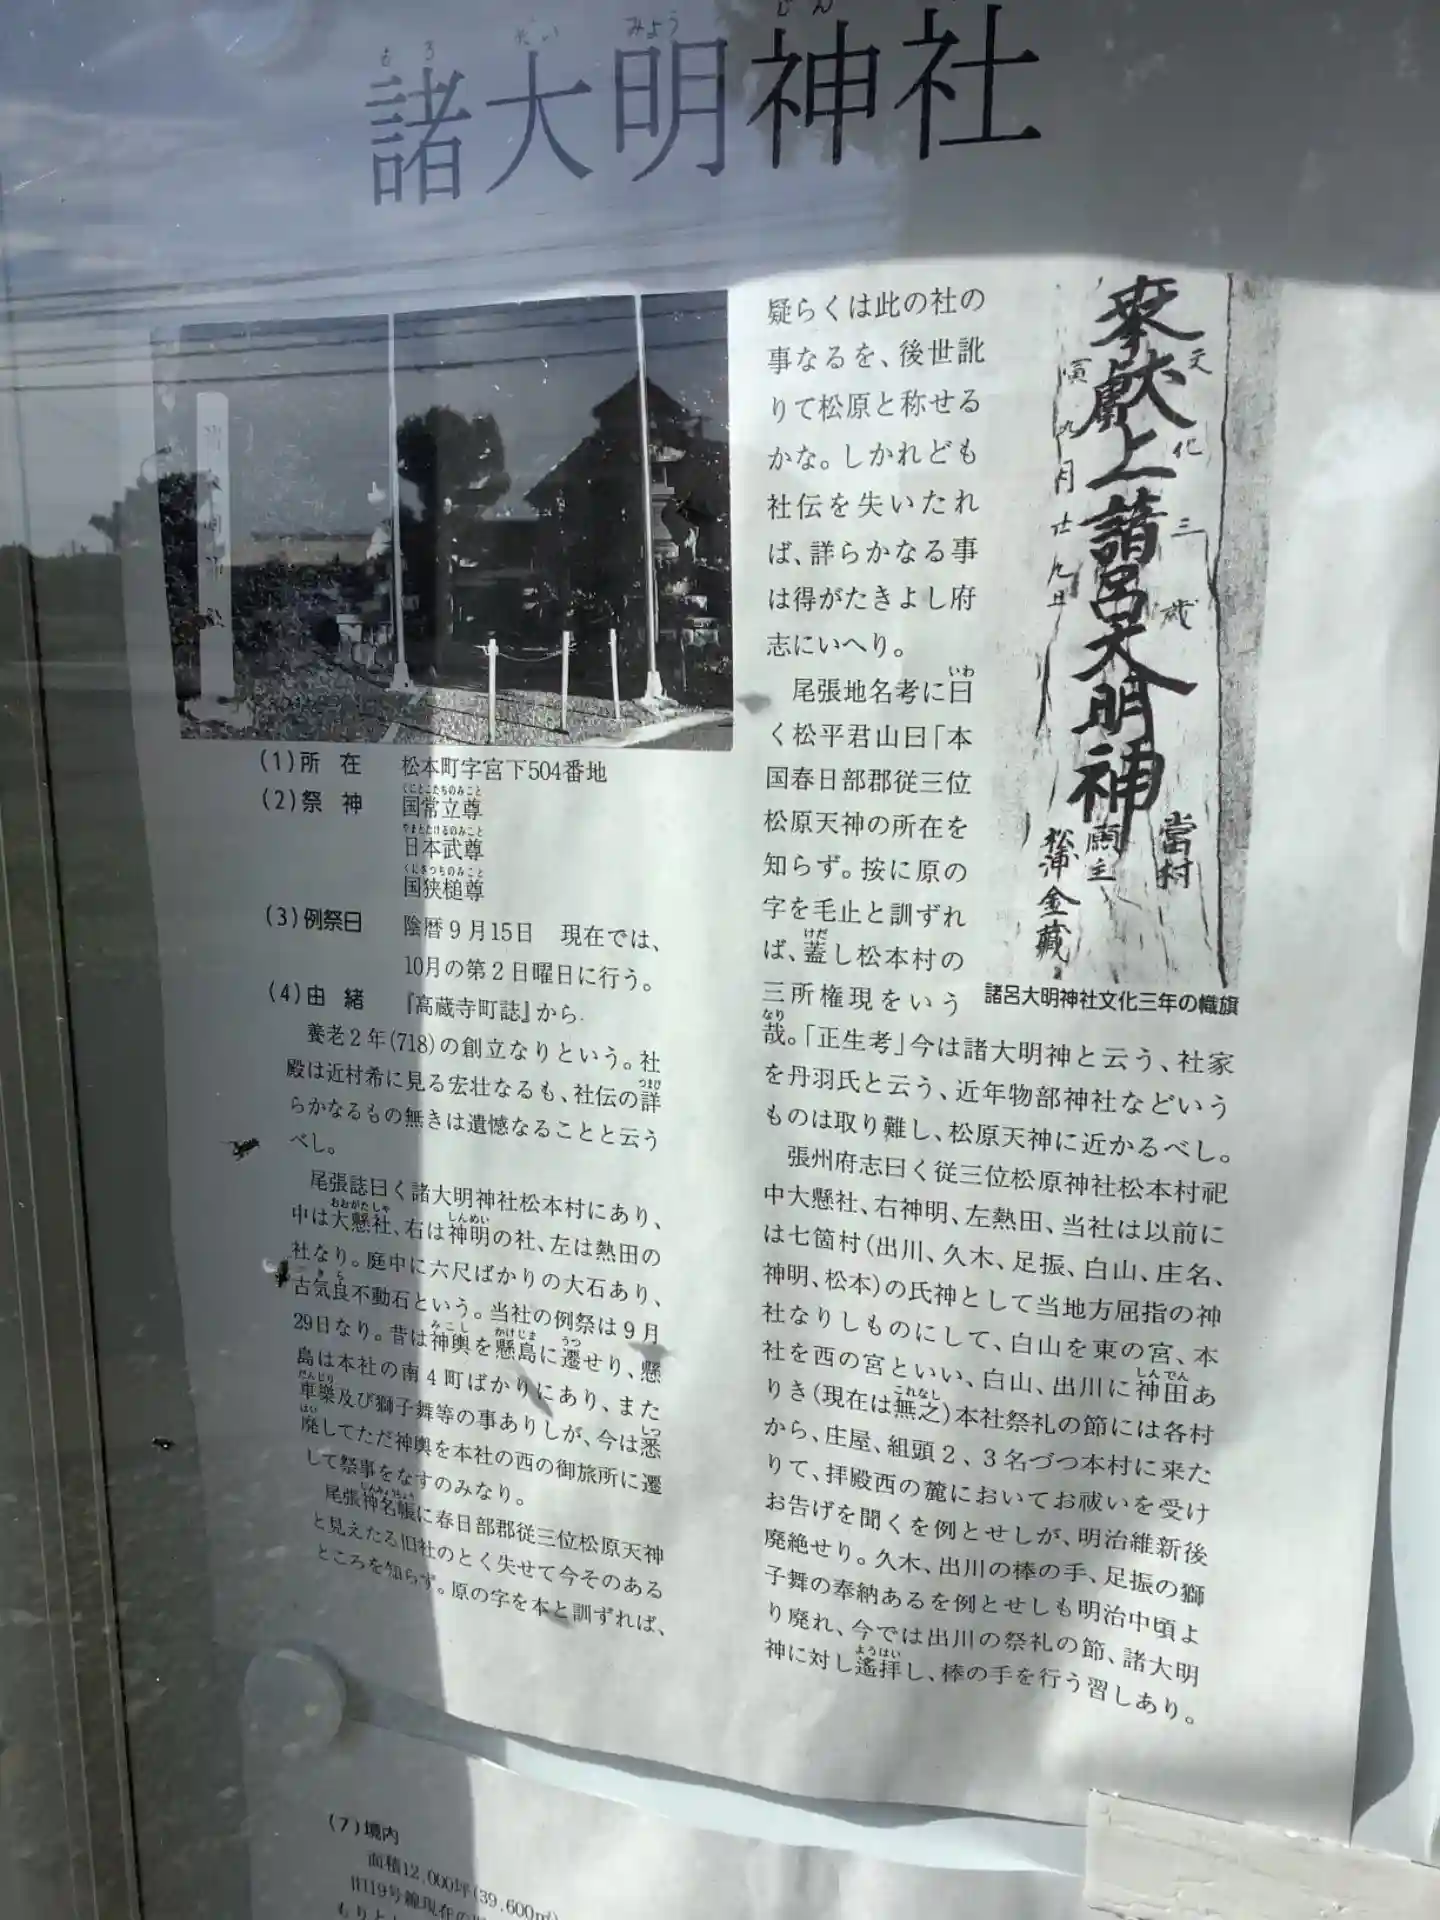 諸大明神社
もろ だい みょう じん
(1)所在 松本町字宮下504番地
(2)祭神 国常立尊
くにとこたちのみこと
日本武尊
やまとたけるのみこと
国狭槌尊
くにさつちのみこと
(3)例祭日 陰暦9月15日 現在では、
10月の第2日曜日に行う。
(4)由緒 『高蔵寺町誌』から
養老2年(718)の創立なりという。社
殿は近村希に見る宏壮なるも、社伝の詳
らかなるもの無きは遺憾なることと云う
べし。
尾張誌曰く諸大明神社松本村にあり、
中は大懸社、右は神明の社、左は熱田の
社なり。庭中に六尺ばかりの大石あり、
古気良不動石という。当社の例祭は9月
29日なり。昔は神輿を懸島に遷せり、懸
島は本社の南4町ばかりにあり、また
車樂及び獅子舞等の事ありしが、今は悉
廃してただ神輿を本社の西の御旅所に遷
して祭事をなすのみなり。
尾張神名帳に春日部郡従三位松原天神
と見えたる旧社のとく失せて今そのある
ところを知らず。原の字を本と訓ずれば、
疑らくは此の社の
事なるを、後世訛
りて松原と称せる
かな。しかれども
社伝を失いたれ
ば、詳らかなる事
は得がたきよし府
志にいへり。
尾張地名考に曰
く松平君山曰「本
国春日部郡従三位
松原天神の所在を
知らず。按に原の
字を毛止と訓ずれ
ば、蓋し松本村の
三所権現をいう
哉。「正生考」今は諸大明神と云う、社家
を丹羽氏と云う、近年物部神社などいう
ものは取り難し、松原天神に近かるべし。
張州府志曰く従三位松原神社松本村祀
中大懸社、右神明、左熱田、当社は以前に
は七箇村(出川、久木、足振、白山、庄名、
神明、松本)の氏神として当地方屈指の神
社なりしものにして、白山を東の宮、本
社を西の宮といい、白山、出川に神田あ
りき(現在は無之)本社祭礼の節には各村
から、庄屋、組頭2、3名づつ本村に来た
りて、拝殿西の麓においてお祓いを受け
お告げを聞くを例とせしが、明治維新後
廃絶せり。久木、出川の棒の手、足振の獅
子舞の奉納あるを例とせしも明治中頃よ
り廃れ、今では出川の祭礼の節、諸大明
神に対し遙拝し、棒の手を行う習しあり。
文化三歳
奉獻上諸呂大明神
寅九月廿九日
當村
願主
松浦金藏
諸呂大明神社文化三年の幟旗
(7)境内
面積12,000坪(39,600㎡)
旧19号線現在の